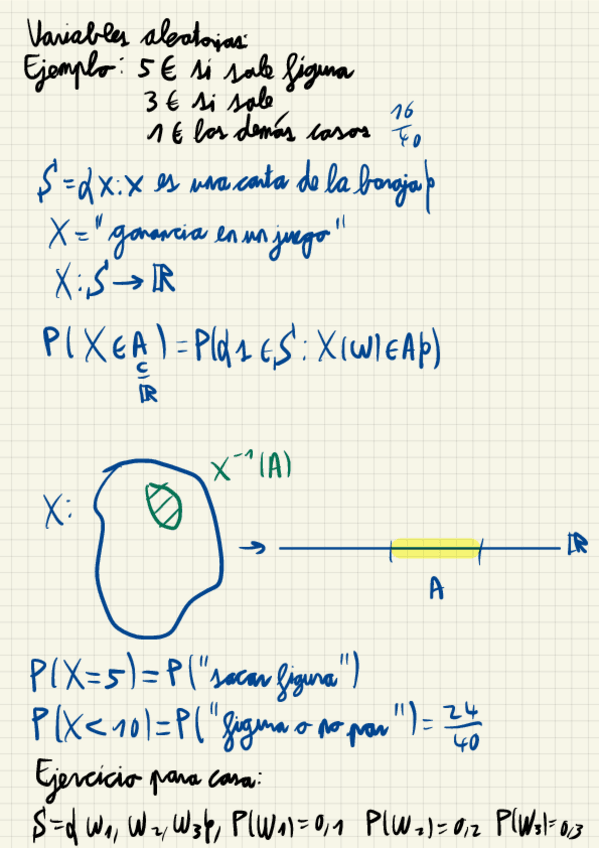 Variables aleatorias:
Ejemplo: 5 € si sale figura
3 € si sale
1 € los demás casos 16/40
S = { x : x es una carta de la baraja }
X = "ganancia en un juego"
X : S → ℝ
P( X ∈ A ) = P({ s ∈ S : X(w) ∈ A })
⊆
ℝ
X⁻¹(A)
X:
→ ℝ
A
P(X=5) = P("sacar figura")
P(X<10) = P("figura o no par") = 24/40
Ejercicio para casa:
S = { w₁, w₂, w₃ }, P(w₁) = 0,1 P(w₂) = 0,2 P(w₃) = 0,3